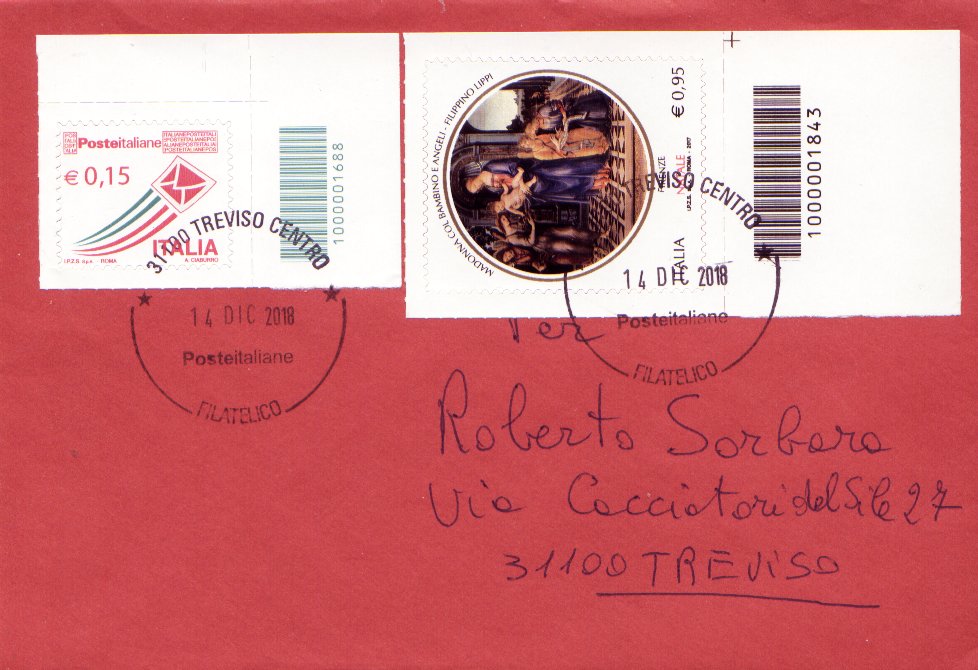 POSTE ITALIANE
Posteitaliane
€ 0,15
ITALIA
I.P.Z.S. S.p.A. - ROMA
A. CIABURRO
1000001688
MADONNA COL BAMBINO E ANGELI - FILIPPINO LIPPI
€ 0,95
FIRENZE
NATALE
I.P.Z.S. ROMA 2017
ITALIA
1000001843
31100 TREVISO CENTRO
14 DIC 2018
Posteitaliane
FILATELICO
TREVISO CENTRO
14 DIC 2018
Posteitaliane
FILATELICO
Per
Roberto Sorbara
Via Cacciatori del Sile 27
31100 TREVISO